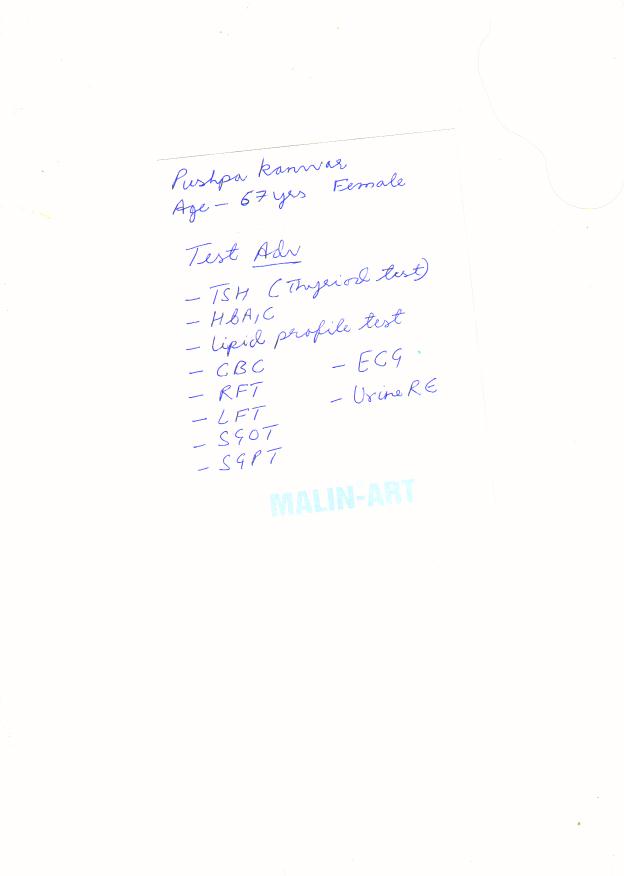 Pushpa Kanwar
Age - 67 yrs Female
Test Adv
- TSH (Thyriod test)
- HbA1C
- Lipid profile test
- CBC
- RFT
- LFT
- SGOT
- SGPT
- ECG
- Urine RE
MALIN-ART